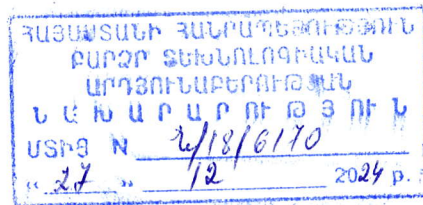 ՀԱՅԱՍՏԱՆԻ ՀԱՆՐԱՊԵՏՈՒԹՅՈՒՆ
ԲԱՐՁՐ ՏԵԽՆՈԼՈԳԻԱԿԱՆ
ԱՐԴՅՈՒՆԱԲԵՐՈՒԹՅԱՆ
ՆԱԽԱՐԱՐՈՒԹՅՈՒՆ
ՄՏԻՑ N /18/6170
« 27 » 12 2024 թ.